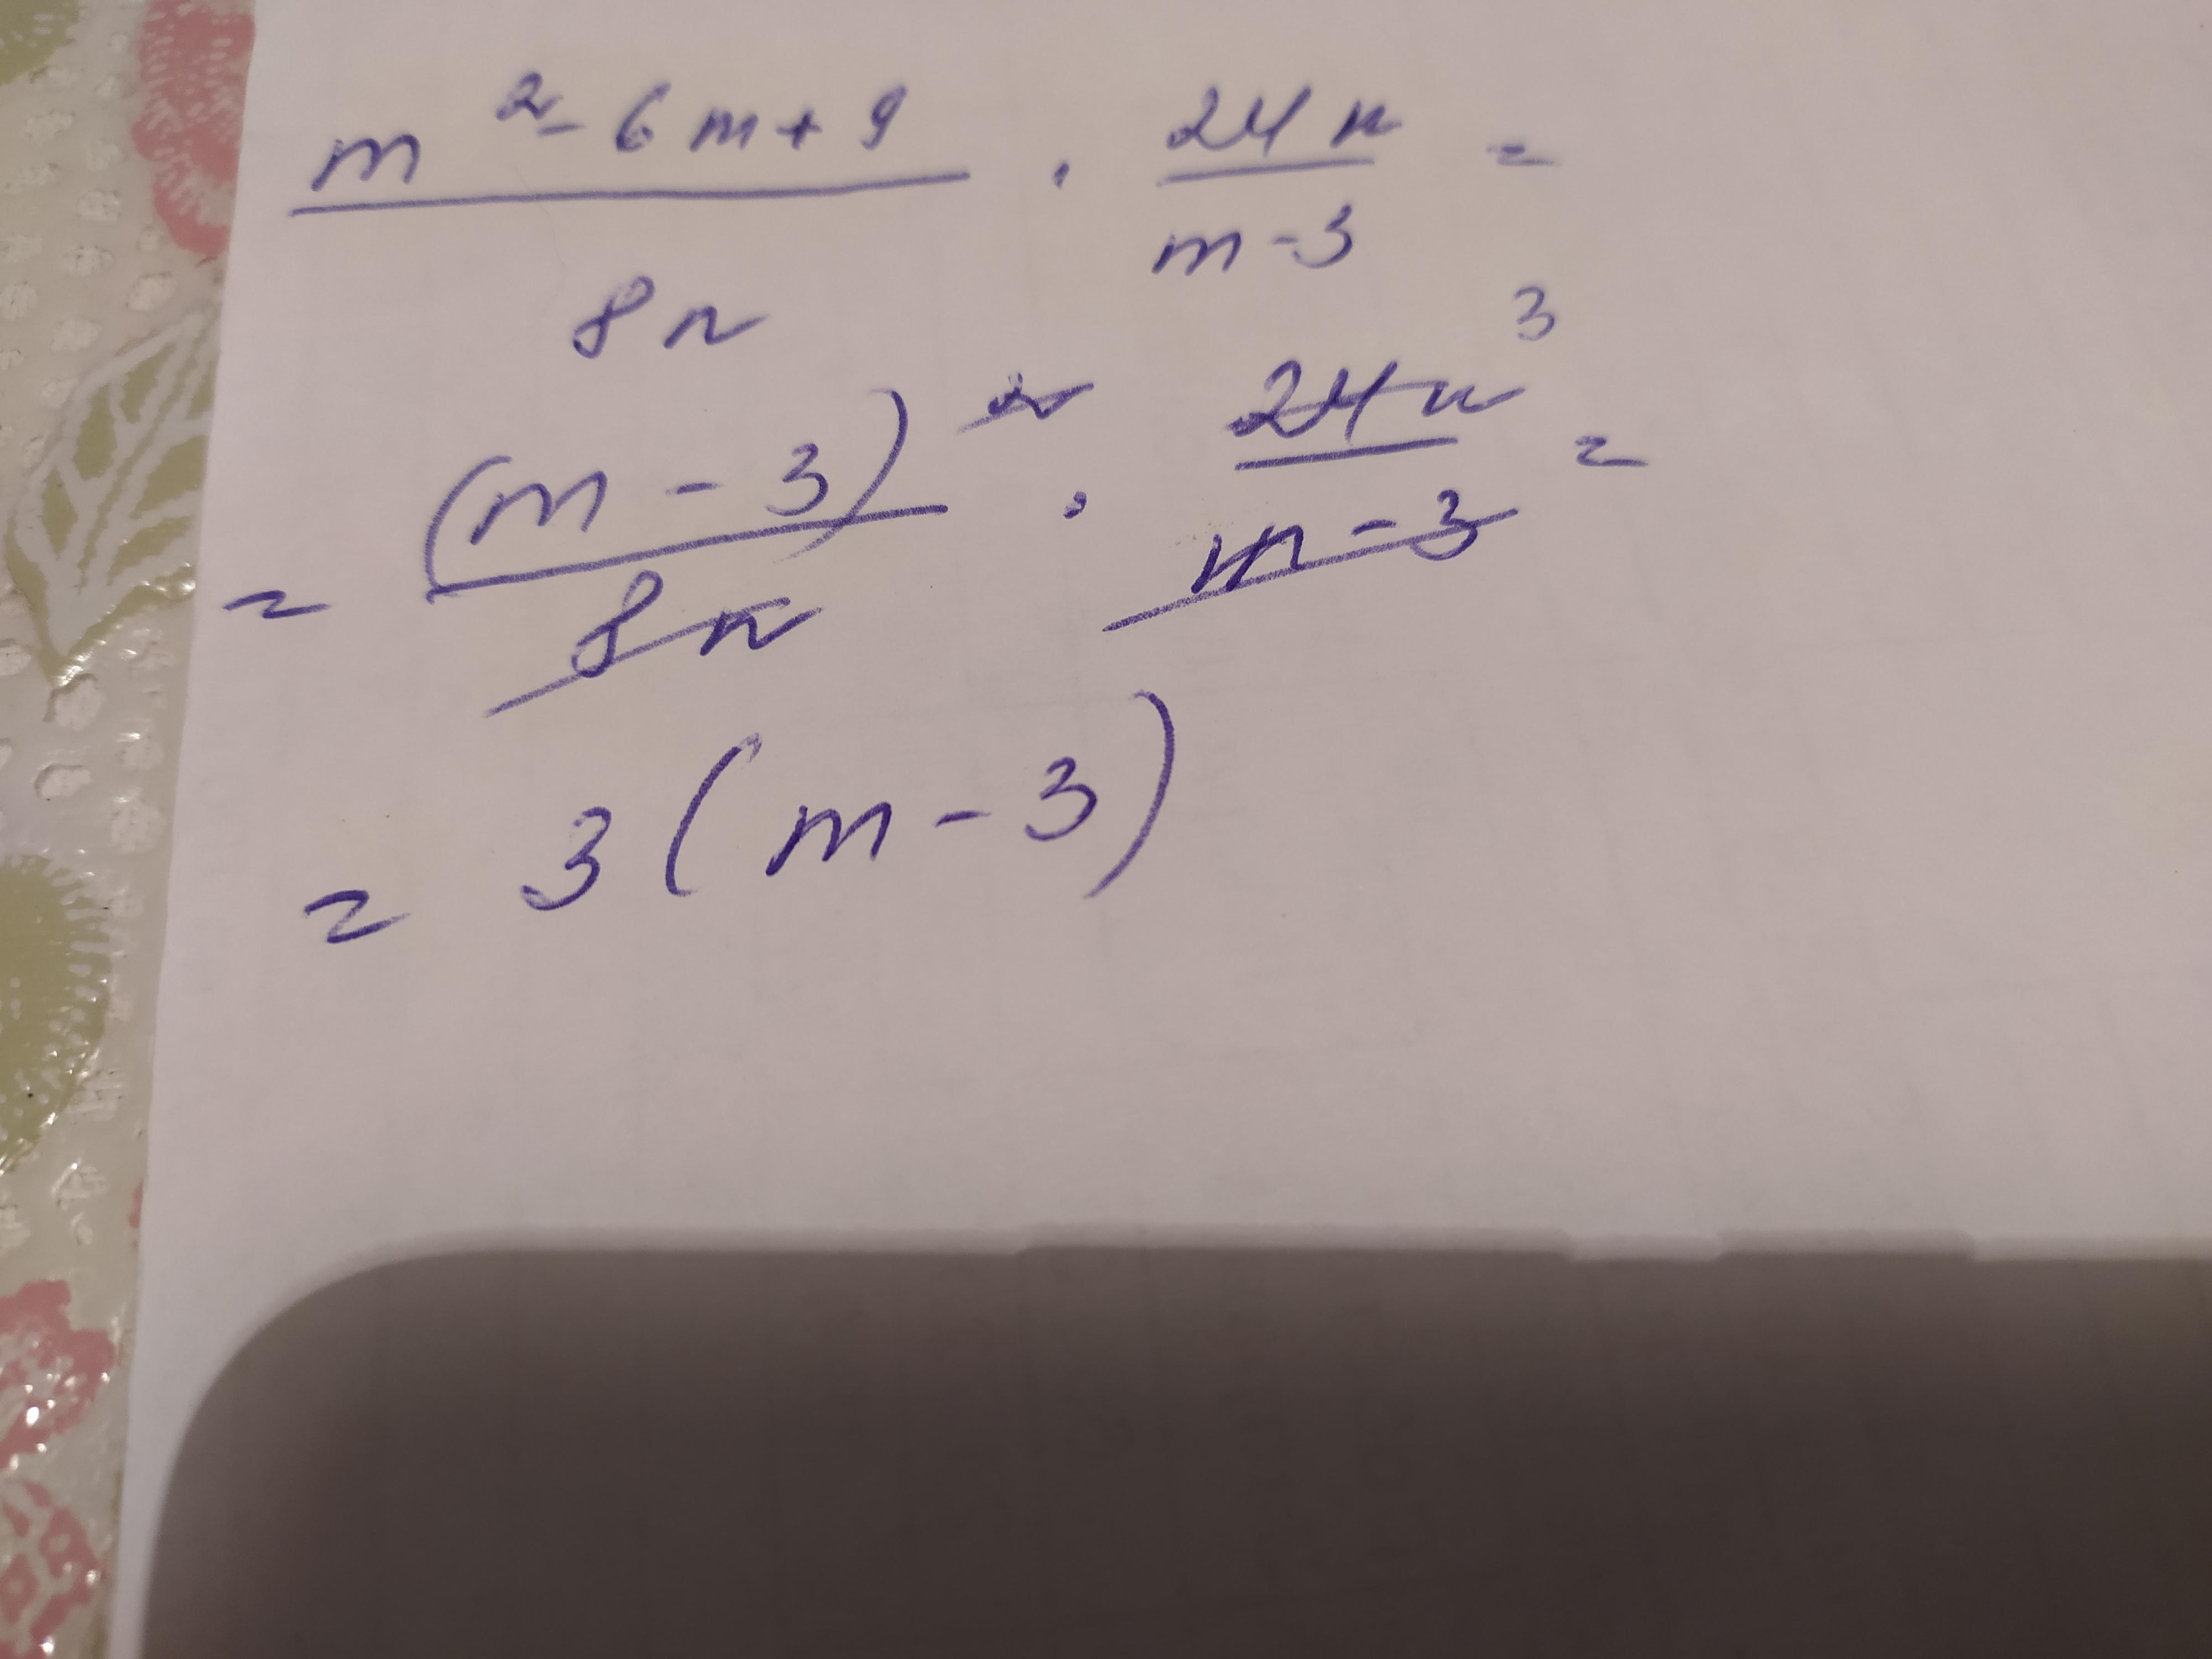 (m² - 6m + 9)/(8n) · (24n)/(m - 3) =
= (m - 3)²/(8n) · (24n)/(m - 3) = 3
= 3(m - 3)